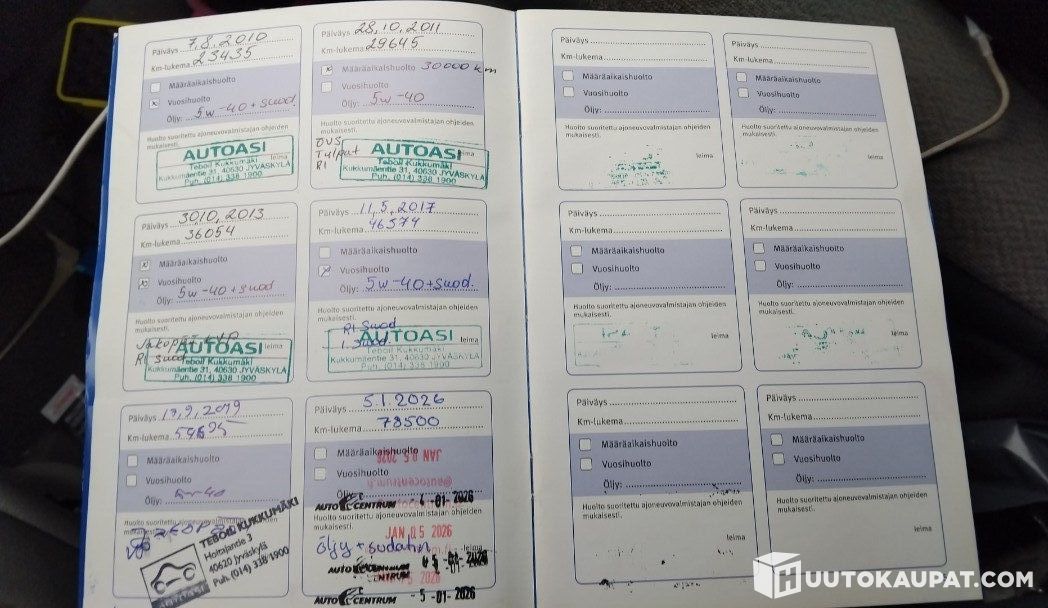 Päiväys 7.8.2010
Km-lukema 23435
Määräaikaishuolto
Vuosihuolto
Öljy: 5w-40 + suod.
Huolto suoritettu ajoneuvovalmistajan ohjeiden
mukaisesti.
AUTOASI leima
Teboil Kukkumäki
Kukkumäentie 31, 40630 JYVÄSKYLÄ
Puh. (014) 338 1900
Päiväys 28.10.2011
Km-lukema 29645
Määräaikaishuolto 30000 km
Vuosihuolto
Öljy: 5w-40
Huolto suoritettu ajoneuvovalmistajan ohjeiden
mukaisesti.
Tulpat
RI
AUTOASI leima
Teboil Kukkumäki
Kukkumäentie 31, 40630 JYVÄSKYLÄ
Puh. (014) 338 1900
Päiväys 3010.2013
Km-lukema 36054
Määräaikaishuolto
Vuosihuolto
Öljy: 5w-40 + suod
Huolto suoritettu ajoneuvovalmistajan ohjeiden
mukaisesti.
RI suod
AUTOASI leima
Teboil Kukkumäki
Kukkumäentie 31, 40630 JYVÄSKYLÄ
Puh. (014) 338 1900
Päiväys 11.5.2017
Km-lukema 46574
Määräaikaishuolto
Vuosihuolto
Öljy: 5w-40+suod.
Huolto suoritettu ajoneuvovalmistajan ohjeiden
mukaisesti.
RI Suod
AUTOASI leima
Teboil Kukkumäki
Kukkumäentie 31, 40630 JYVÄSKYLÄ
Puh. (014) 338 1900
Päiväys 17.9.2019
Km-lukema
Määräaikaishuolto
Vuosihuolto
Öljy: 5w-40
Huolto suoritettu ajoneuvovalmistajan ohjeiden
mukaisesti.
TEBOIL KUKKUMÄKI
Holtajantie 3
40620 Jyväskylä
Puh. (014) 338 1900
AUTOASI
Päiväys 5.1.2026
Km-lukema 78500
Määräaikaishuolto
JAN 05 2026
Vuosihuolto
@autocentrum.fi
Öljy:
AUTO CENTRUM - 4 -01- 2026
Huolto suoritettu ajoneuvovalmistajan ohjeiden
mukaisesti.
JAN 05 2026
öljy + sudatin leima
AUTO CENTRUM - 5 -01- 2026
AUTO CENTRUM - 5 -01- 2026
Päiväys
Km-lukema
Määräaikaishuolto
Vuosihuolto
Öljy:
Huolto suoritettu ajoneuvovalmistajan ohjeiden
mukaisesti.
leima
Päiväys
Km-lukema
Määräaikaishuolto
Vuosihuolto
Öljy:
Huolto suoritettu ajoneuvovalmistajan ohjeiden
mukaisesti.
leima
Päiväys
Km-lukema
Määräaikaishuolto
Vuosihuolto
Öljy:
Huolto suoritettu ajoneuvovalmistajan ohjeiden
mukaisesti.
leima
Päiväys
Km-lukema
Määräaikaishuolto
Vuosihuolto
Öljy:
Huolto suoritettu ajoneuvovalmistajan ohjeiden
mukaisesti.
leima
Päiväys
Km-lukema
Määräaikaishuolto
Vuosihuolto
Öljy:
Huolto suoritettu ajoneuvovalmistajan ohjeiden
mukaisesti.
leima
Päiväys
Km-lukema
Määräaikaishuolto
Vuosihuolto
Öljy:
Huolto suoritettu ajoneuvovalmistajan ohjeiden
mukaisesti.
leima
HUUTOKAUPAT.COM